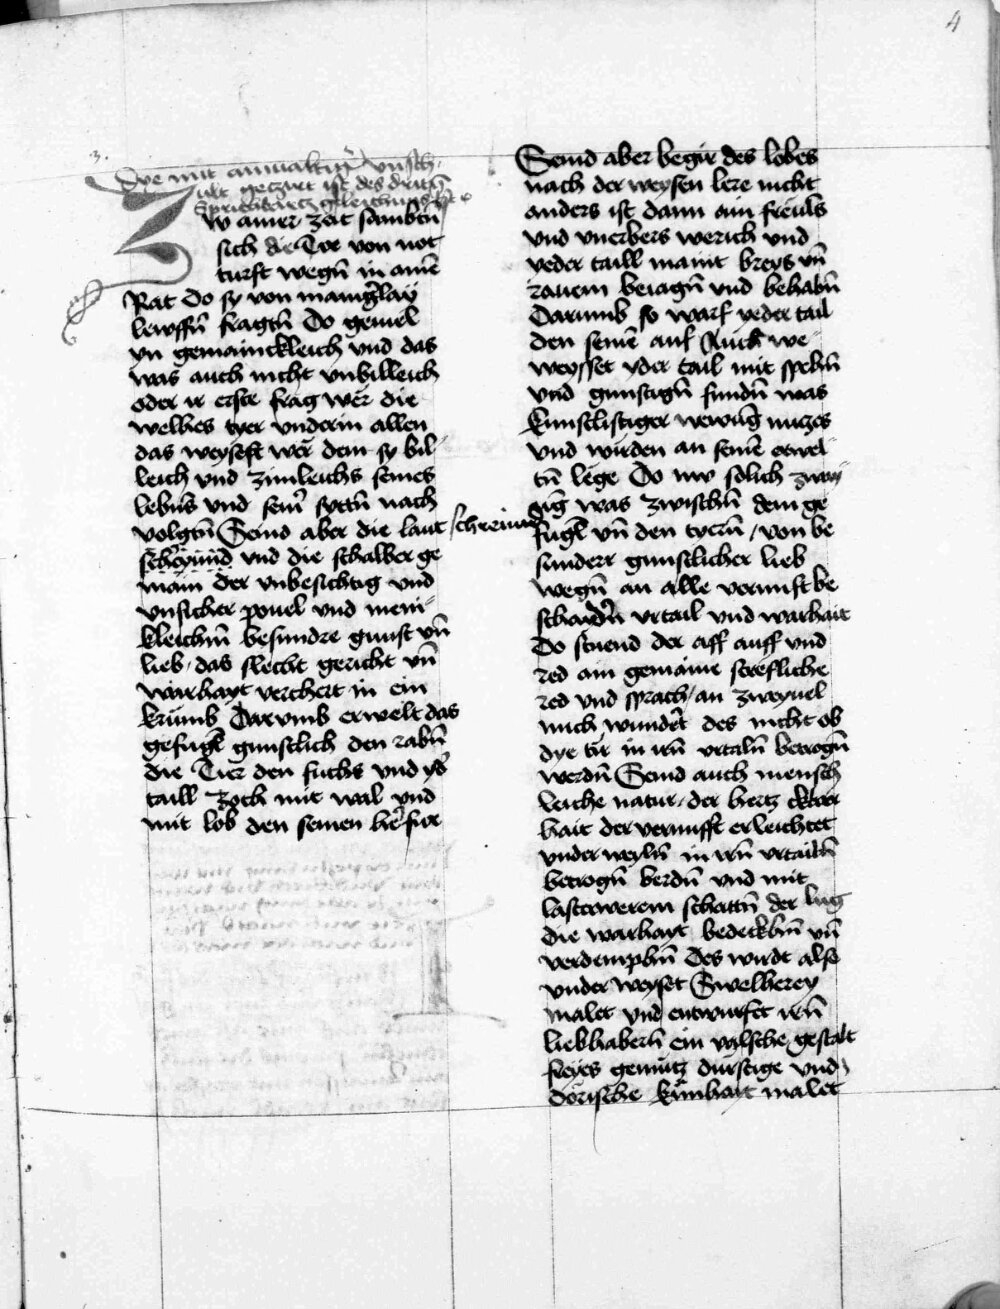 4
3.
Dye mit ainualtig̃ vnsch
ult geczirt ist des dritñ
Spruchs ... geleichnus ist
Zw ainer zeit sambtñ
sich die Tyer von not
turft wegñ in ainē
Rat Do sy von maingerlay
lewffñ fragtñ Do geuiel
yn gemainckleich vnd das
was auch nicht vnbilleich
oder ir erste frag wer die
welhes tyer vnderin allen
das weysest wer dem sy bil
leich vnd zimleichs seines
lebns vnd seinr syttñ nach
volgtñ Seind aber die laut schreiund
schreyund vnd die schalber ge
main der vnbesichtig vnd
vnsicher pouel vnd meni
kleichm̄ besundre gunst vñ
lieb das slecht gericht vñ
warhayt verchert in ein
krumb Darvmb erwelt das
gefugel gunstlich den rabñ
die Tier den fuchs vnd yd̄
taill zoch mit wal vnd
mit lob den seinen herfür
Seind aber begir des lobes
nach der weysen lere nicht
anders ist dann ain freuls
vnd vnerbers werich vnd
yeder taill maint breys vñ
rauem beiagñ vnd behabñ
Darumb so warf yeder tail
den seinē auf Auch we
weysset yder tail mit spehñ
vnd gunstigñ fundñ was
kunstlistiger newūg nuczes
vnd wirden an seinē erwel
tñ lege Do nw solich zway
ūg was zwischñ dem ge
fugel vñ den tyerñ von be
sunderr gunstlicher lieb
wegñ an alle vernuft be
schaidn̄ vrtail vnd warhait
Do stuend der aff auff vnd
red ain gemaine strefliche
red vnd sprach an zweyuel
mich wundert des nicht ob
dye tir in irñ vrtailñ betrogñ
werdñ Seind auch mensch
leiche natur der hertz ...
hait der vernufft erleichtet
vnder weylñ in irñ vrtailñ
betrogñ berdñ vnd mit
lasterwerem schattñ der lug
die warhayt bedeckhñ vñ
verdemphñ Des wirdt also
vnder weyset Swelherey
malet vnd entwurfet irñ
liebhaberñ ein valsche gestalt
freyes gemütz durstige vnd
dorische künhait malet